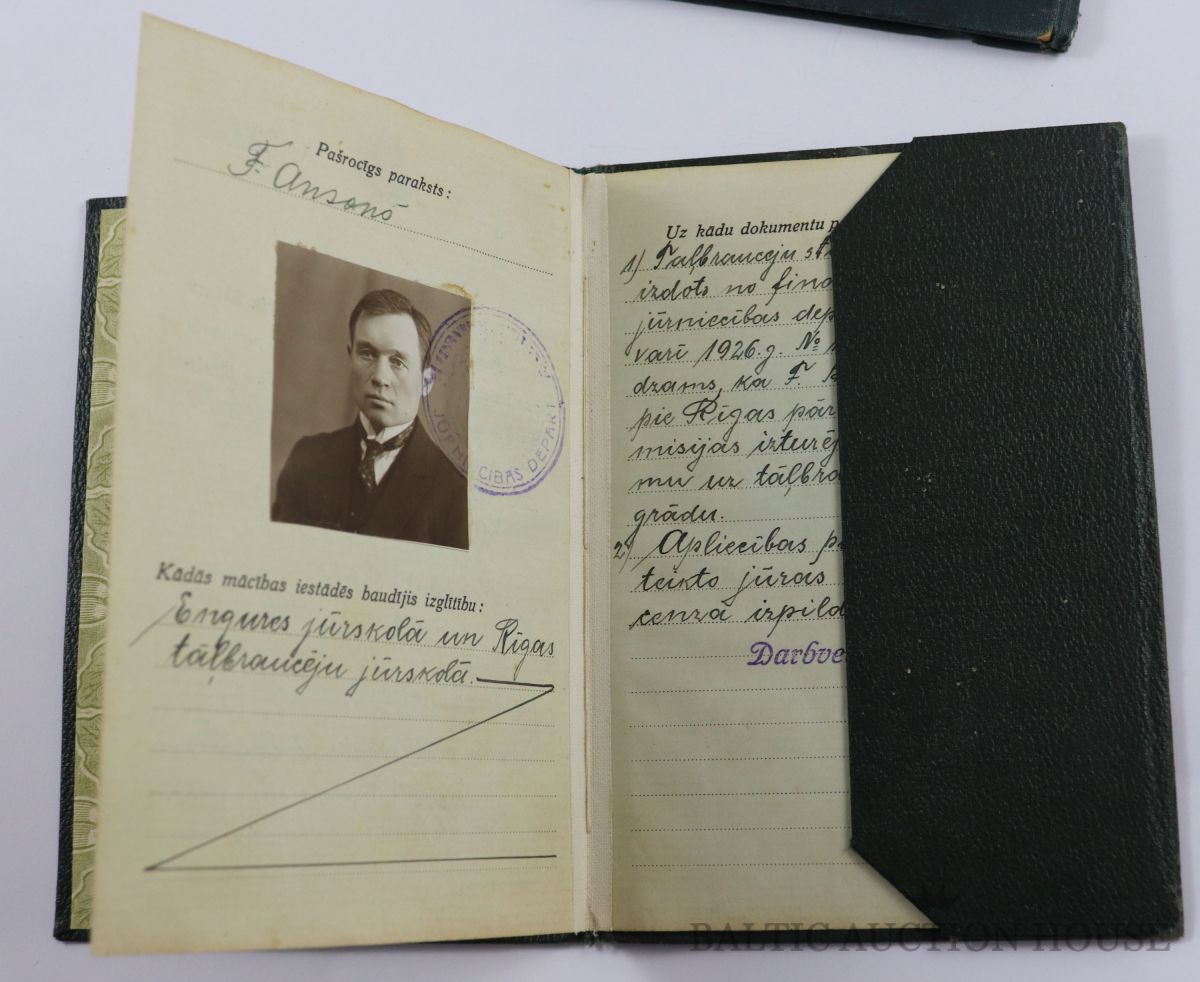 Pašrocīgs paraksts:
F. Ansons
JŪRNIECĪBAS DEPART
Kādās mācības iestādēs baudījis izglītību:
Engures jūrskolā un Rīgas
tāļbraucēju jūrskolā.
Uz kādu dokumentu p
1) Tāļbraucēju st
izdots no fina
jūrniecības dep
varī 1926.g. №
dzams, ka F.
pie Rīgas pār
misijas izturēj
mu uz tāļbra
grādu.
2) Apliecības p
teikto jūras
cenza izpild
Darbve
BALTIC AUCTION HOUSE